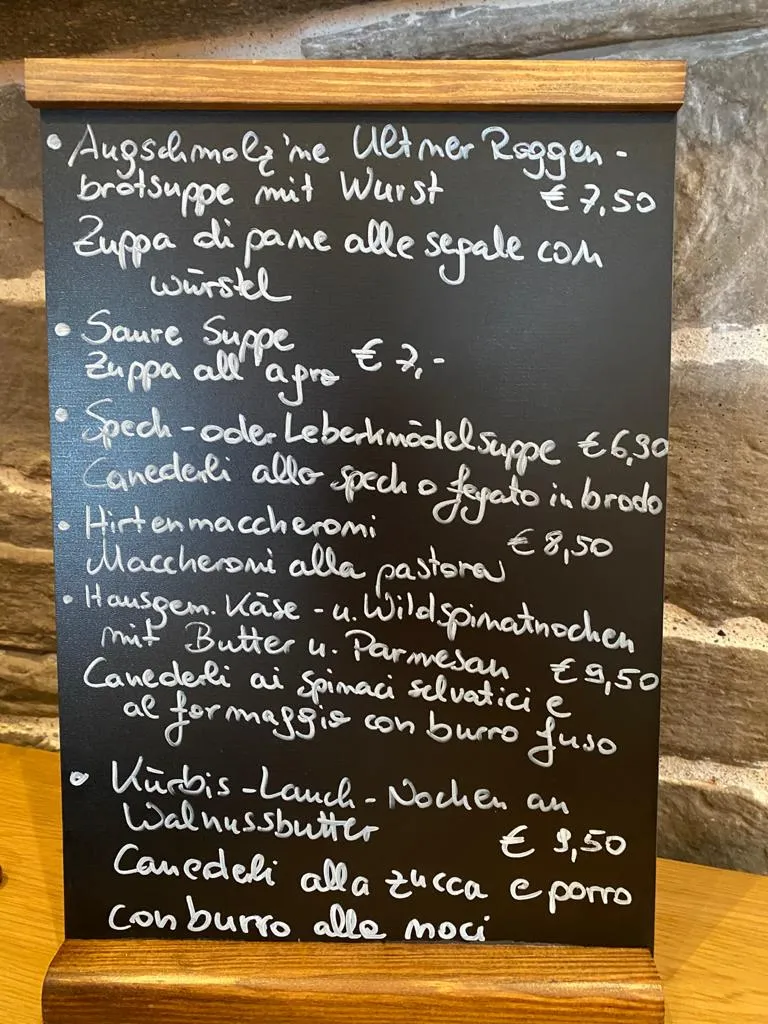 • Augschmolz'ne Ultner Roggen-
brotsuppe mit Wurst € 7,50
Zuppa di pane alle segale con
würstel
• Saure Suppe
Zuppa all'agro € 7,-
• Speck-oder Leberknödelsuppe € 6,90
Canederli allo speck o fegato in brodo
• Hirtenmaccheroni € 8,50
Maccheroni alla pastora
• Hausgem. Käse- u. Wildspinatnocken
mit Butter u. Parmesan € 9,50
Canederli ai spinaci selvatici e
al formaggio con burro fuso
• Kürbis-Lauch-Nocken an
Walnussbutter € 9,50
Canederli alla zucca e porro
con burro alle noci